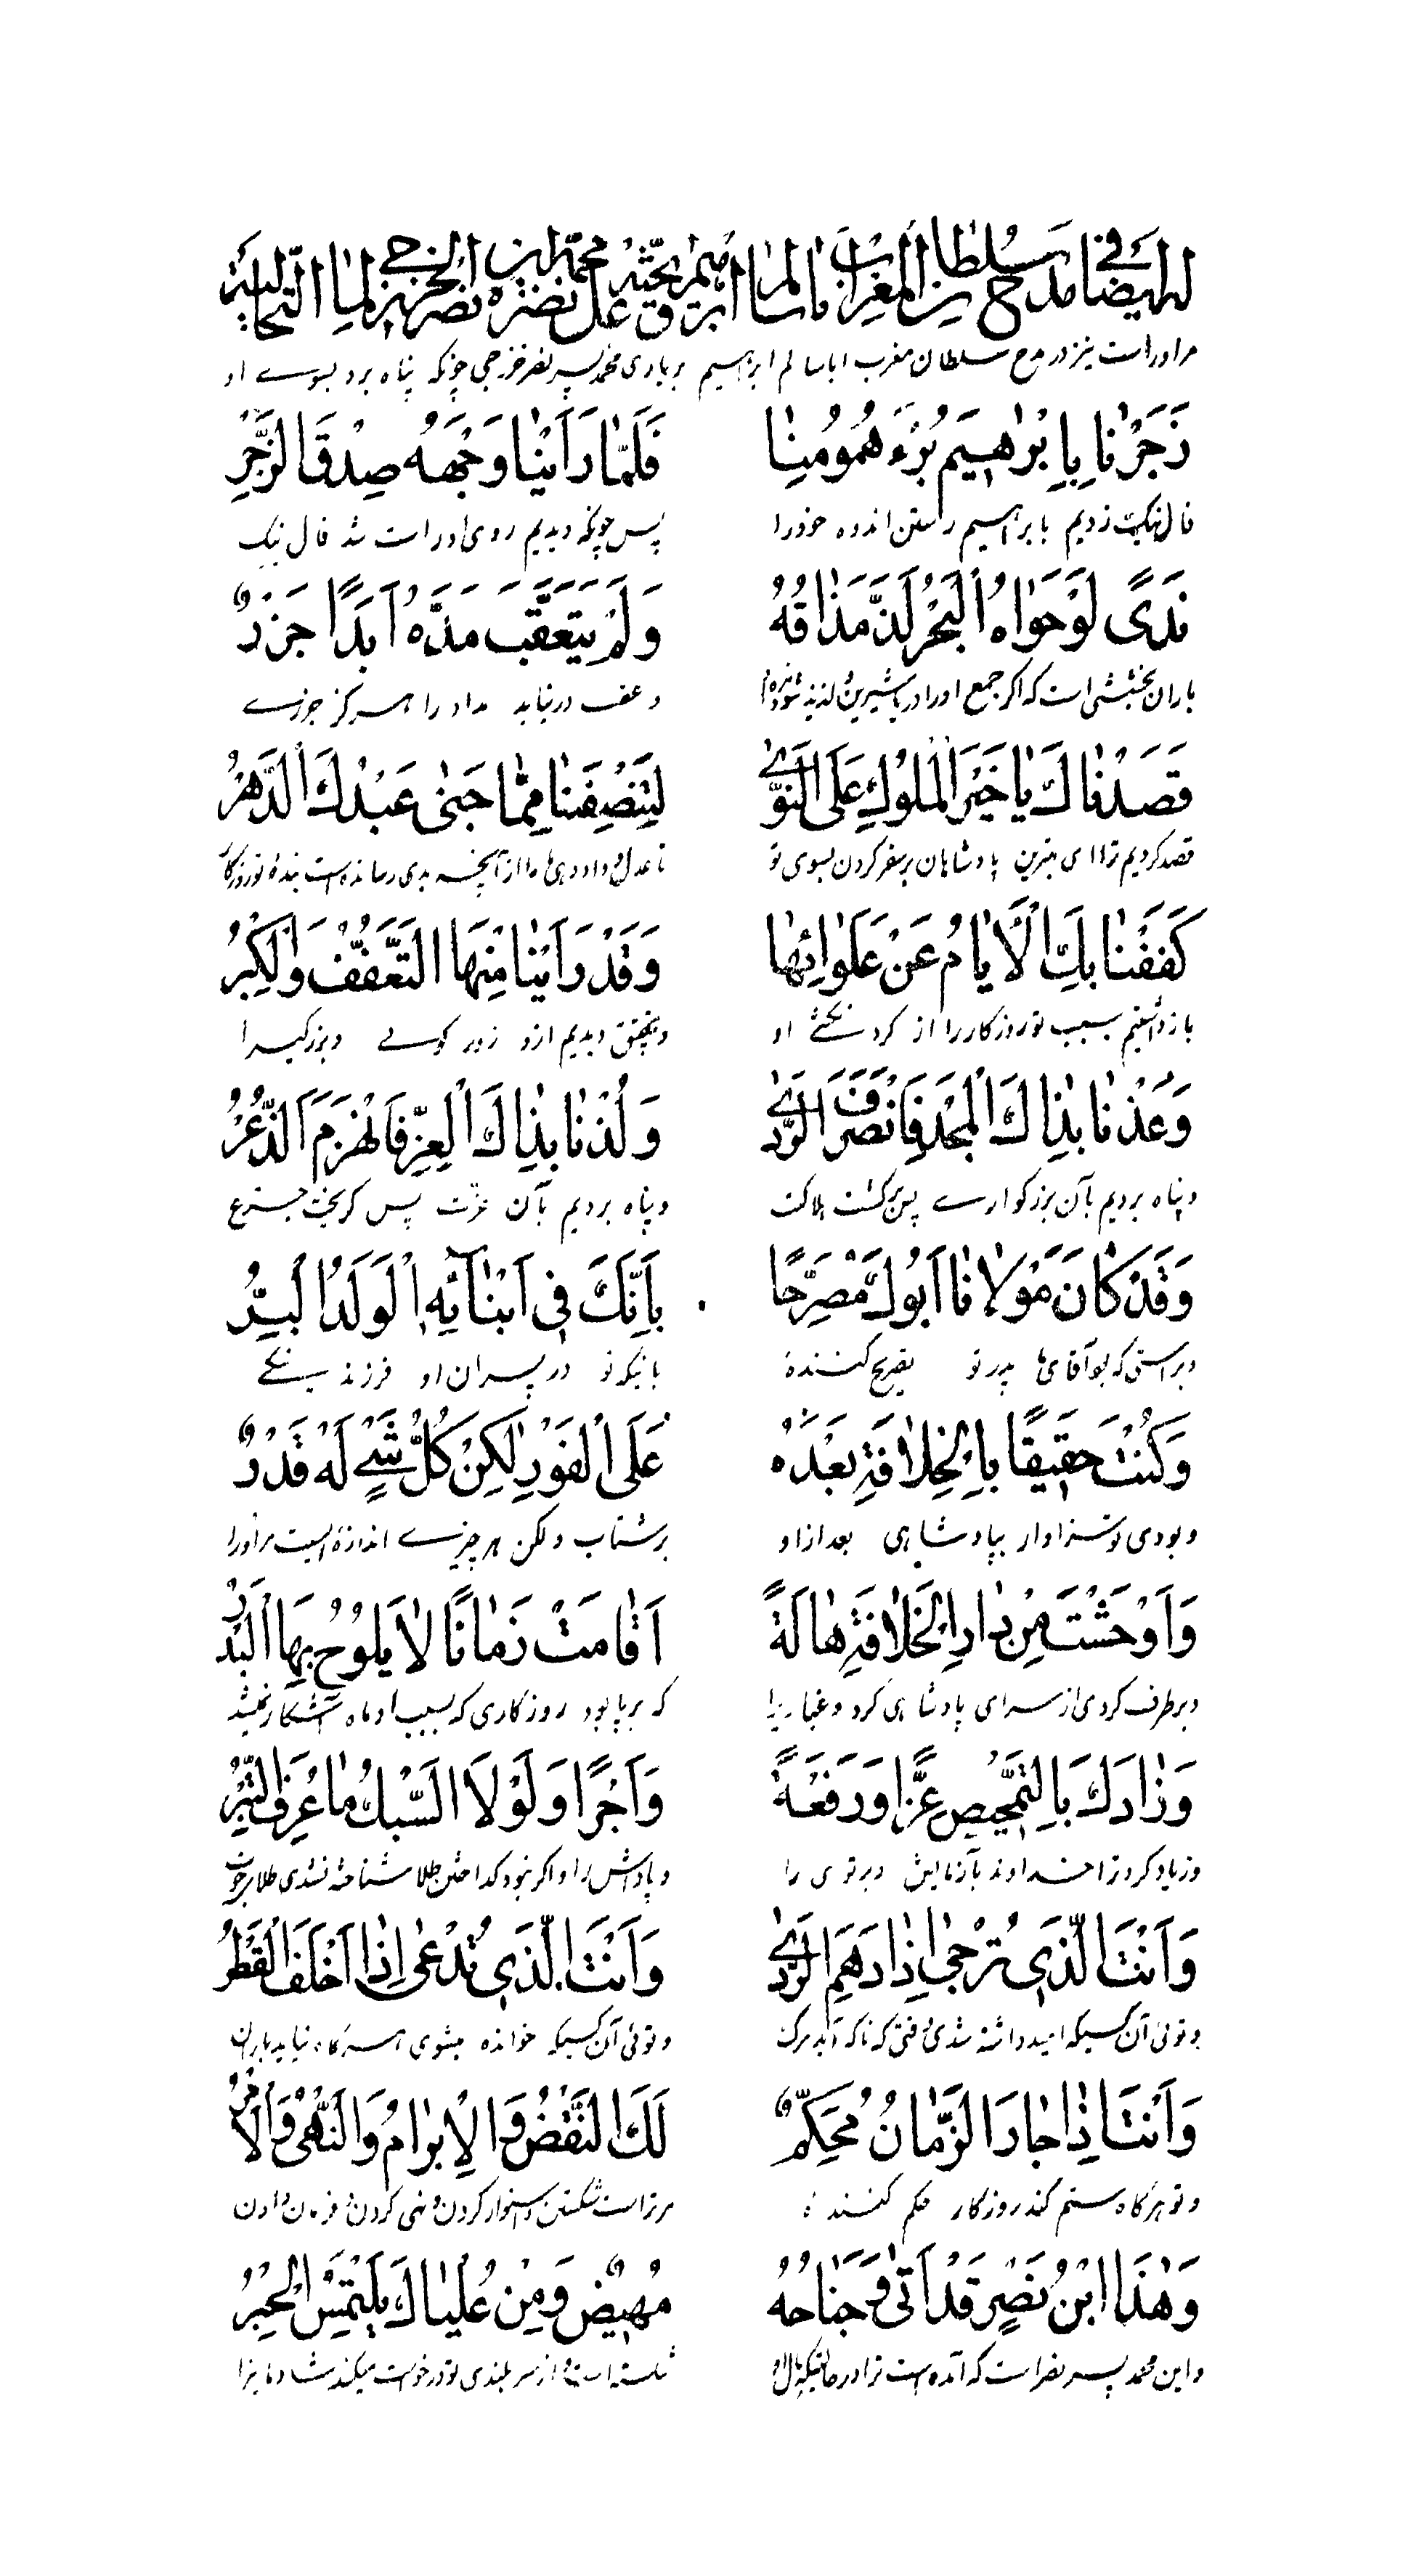 له ايضا في مدح سلطان المغرب اباسالم ابراهيم يحثّه على نصرة محمّد ابن نصر الخزرجي لما التجا اليه
مراوراست نیز در مدح سلطان مغرب اباسالم ابراهیم بر یاری محمد پسر نصر خزرجی چونکه پناه برد بسوے او
زَجَرْنا بِاِبْرٰهيمَ بُرْءَ هُمُومِنٰا فَلَمّا رَاَيْنٰا وَجْهَهُ صِدْقَ الزَّجْرُ
فال نیک زدیم بابراهیم رستن اندوه خود را پس چونکه دیدیم روی او راست شد فال نیک
نَدًى لَوْ حَوٰاهُ الْبَحْرُ لَذَّ مَذٰاقُهُ وَلَمْ يَتَعَقَّبْ مَدَّهُ اَبَدًا جَزْرٌ
باران بخششی است که اگر جمع او را دریا شیرین و لذیذ شود و عقب در نیاید مداد را هرگز جزرے
قَصَدْنٰاكَ يٰا خَيْرَ الْمُلُوكِ عَلَى النَّوٰى لِتُنْصِفَنٰا مِمّٰا جَنٰى عَبْدُكَ الدَّهْرُ
قصد کردیم ترا ای بهترین پادشاهان بر سفر کردن بسوی تو تا عدل و داد دهی ما را از آنچه بدی رسانده است بندهٔ تو روزگار
كَفَفْنٰا بِكَ الْاَيّٰامَ عَنْ غَلَوٰائِهٰا وَقَدْ رَاَيْنٰا مِنْهَا التَّعَفُّفَ وَالْكِبْرُ
باز داشتیم بسبب تو روزگار را از او و بتحقیق دیدیم ازو
وَعُذْنٰا بِذٰاكَ الْمَجْدِ فَانْصَرَفَ الرَّدٰى وَلُذْنٰا بِذٰاكَ الْعِزِّ فَانْهَزَمَ الذُّعْرُ
و پناه بردیم بآن بزرگوارے پس برگشت هلاکت و پناه بردیم بآن عزّت پس گریخت جزع
وَقَدْ كٰانَ مَوْلٰانٰا اَبُوكَ مُصَرِّحًا بِاَنَّكَ فِي اَبْنٰائِهِ الْوَلَدُ الْبِرُّ
و براستی که بود آقای ما پدر تو تصریح کنندهٔ باینکه تو در پسران او فرزند نیکے
وَكُنْتَ حَقِيقًا بِالْخِلٰافَةِ بَعْدَهُ عَلَى الْفَوْرِ لٰكِنْ كُلُّ شَيْءٍ لَهُ قَدْرٌ
و بودی تو سزاوار بپادشاهی بعد از او بر شتاب ولکن هر چیزے اندازهٔ است مر او را
وَاَوْحَشْتَ مِنْ دٰارِ الْخِلٰافَةِ هٰالَةً اَقٰامَتْ زَمٰانًا لٰا يَلُوحُ بِهَا الْبَدْرُ
و برطرف کردی از سرای پادشاهی گرد و غبار را که برپا بود روزگاری که بسبب او ماه آشکار نمیشد
وَزٰادَكَ بِالتَّمْحِيصِ عِزًّا وَرِفْعَةً وَاَجْرًا وَلَوْلَا السَّبْكُ مٰا عُرِفَ التِّبْرُ
و زیاد کرد ترا خداوند بآزمایش و برتری را و پاداش را و اگر نبود گداختن طلا شناخته نشدی طلا
وَاَنْتَ الَّذِي تُرْجىٰ اِذٰا دَهَمَ الرَّدٰى وَاَنْتَ الَّذِي تُدْعىٰ اِذٰا اَخْلَفَ الْقَطْرُ
و توئی آن کسیکه امید داشته شدی وقتی که ناگه آید مرگ و توئی آن کسیکه خوانده میشوی هرگاه نیاید باران
وَاَنْتَ اِذٰا جٰارَ الزَّمٰانُ مُحَكَّمٌ لَكَ النَّقْضُ وَالْاِبْرٰامُ وَالنَّهْىُ وَالْاَمْرُ
و تو هرگاه ستم کند روزگار حکم کنندهٔ مر تراست شکستن و استوار کردن و نهی کردن و فرمان دادن
وَهٰذَا ابْنُ نَصْرٍ قَدْ اَتٰى وَجَنٰاحُهُ مُهِيضٌ وَمِنْ عُلْيٰاكَ يَلْتَمِسُ الْجَبْرُ
و این محمد پسر نصر است که آمده است ترا در حالتیکه بال او شکسته است و از سر بلندی تو درخواست میکند